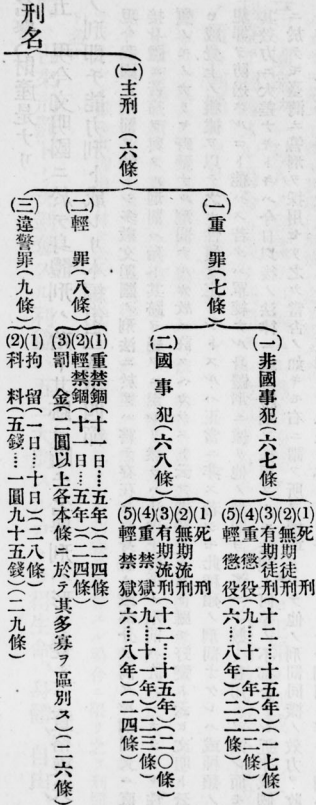 刑名
(一)主刑(六條)
(一)重罪(七條)
(一)非國事犯(六七條)
(1)死刑
(2)無期徒刑
(3)有期徒刑(十二…十五年)(一七條)
(4)重懲役(九…十一年)(二二條)
(5)輕懲役(六…八年)(二二條)
(二)國事犯(六八條)
(1)死刑
(2)無期流刑
(3)有期流刑(十二…十五年)(二〇條)
(4)重禁獄(九…十一年)(二三條)
(5)輕禁獄(六…八年)(二四條)
(二)輕罪(八條)
(1)重禁錮(十一日…五年)(二四條)
(2)輕禁錮(十一日…五年)(二四條)
(3)罰金(二圓以上各本條ニ於テ其多寡ヲ區別ス)(二六條)
(三)違警罪(九條)
(1)拘留(一日…十日)(二八條)
(2)科料(五錢…一圓九十五錢)(二九條)